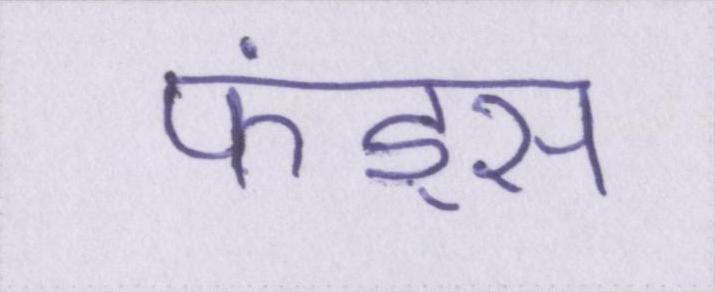 फंड्स